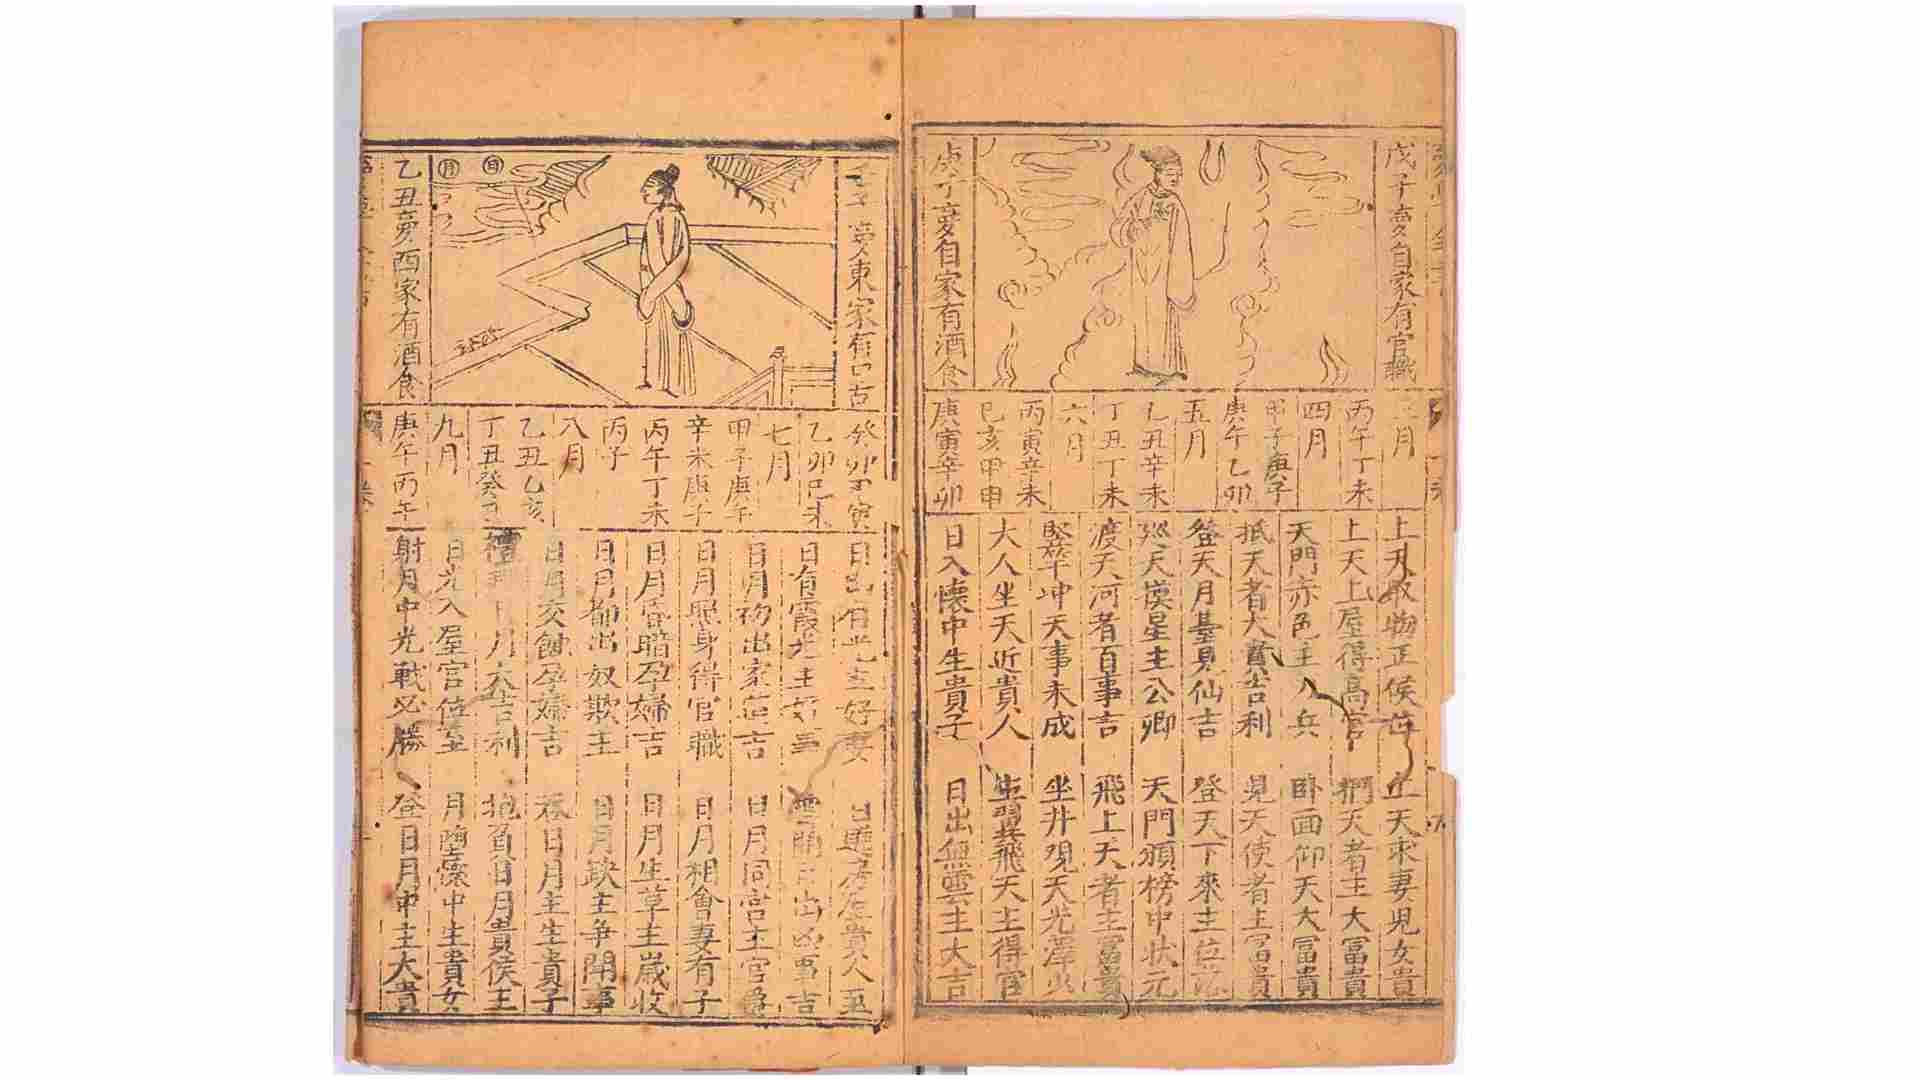 戊子夢自家有官職
庚子夢自家有酒食
月
丙午丁未
四月
甲子庚子
庚午乙卯
五月
乙丑辛未
丁丑丁未
六月
丙寅辛未
巳亥甲申
庚寅辛卯
上天取物正侯位 上天求妻兒女貴
上天上屋得高官 捫天者主大冨貴
天門赤色主八兵 卧面仰天大冨貴
抵天者大貴吉利 見天使者主冨貴
登天月臺見仙吉 登天下來主位
巡天漢星主公卿 天門頒榜中状元
渡天河者百事吉 飛上天者主冨貴
竪竿冲天事未成 坐井观天光澤少
大人坐天近貴人 生翼飛天主得官
日入懷中生貴子 日出無雲主大吉
夢東家有口舌
日
月
乙丑夢西家有酒食
癸卯甲寅
乙卯巳未
七月
甲子庚午
辛未庚子
丙午丁未
丙子
八月
乙丑乙亥
丁丑癸
九月
庚午丙午
日出有光主好妻 日 屋貴人至
日有霞光主好事 雲開日出凶事吉
日月初出家道吉 日月同宫主官爵
日月照身得官職 日月相會妻有子
日月昏暗孕婦吉 日月生草主嵗收
日月都出奴欺主 日月蝕主争閗事
日月交蝕孕婦吉 吞日月主生貴子
禮拜日月大吉利 抱負日月貴侯王
日光入屋官位至 月墮懷中生貴女
射月中光戰必勝 登日月中主大貴